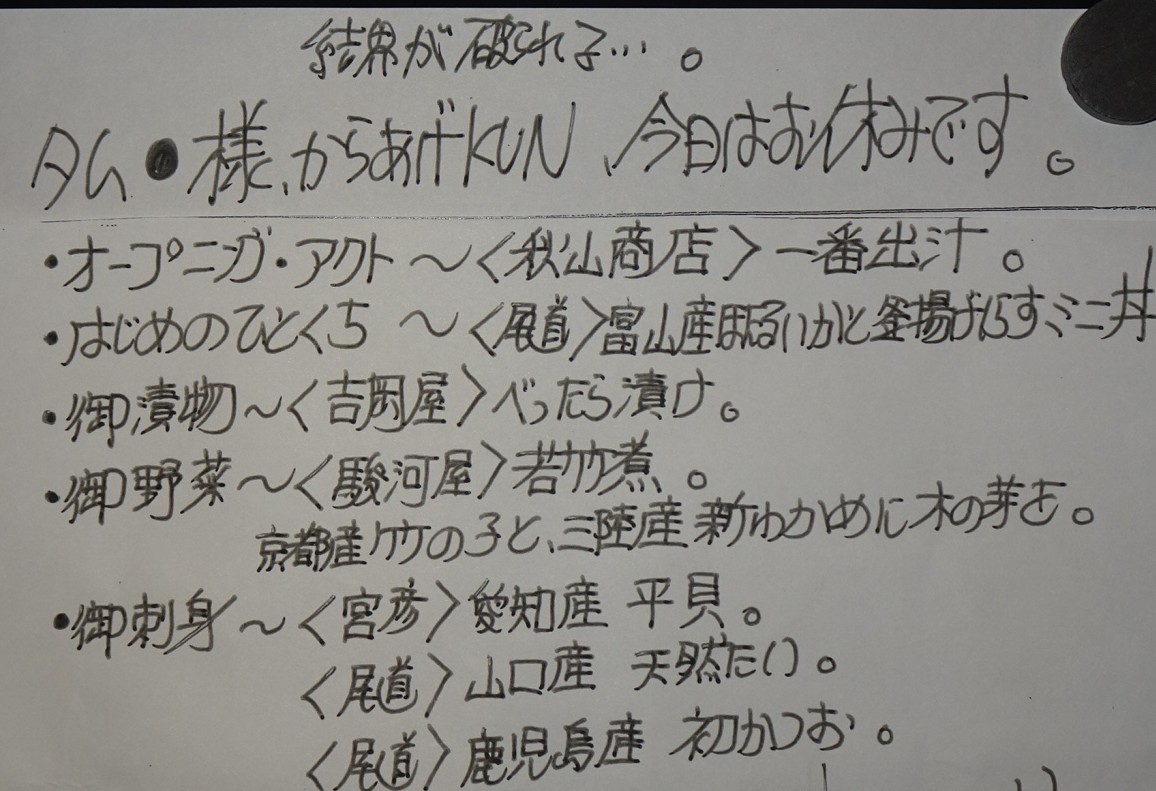 結界が破られる…。
タム●様、からあげKUN、今日はお休みです。
・オープニング・アクト～〈秋山商店〉一番出汁。
・はじめのひとくち～〈尾道〉富山産ほたるいかと釜揚げしらすミニ丼
・御漬物～〈吉岡屋〉べったら漬け。
・御野菜～〈駿河屋〉若竹煮。
京都産竹の子と、三陸産新わかめに木の芽を。
・御刺身～〈宮彦〉愛知産 平貝。
〈尾道〉山口産 天然たい。
〈尾道〉鹿児島産 初かつお。